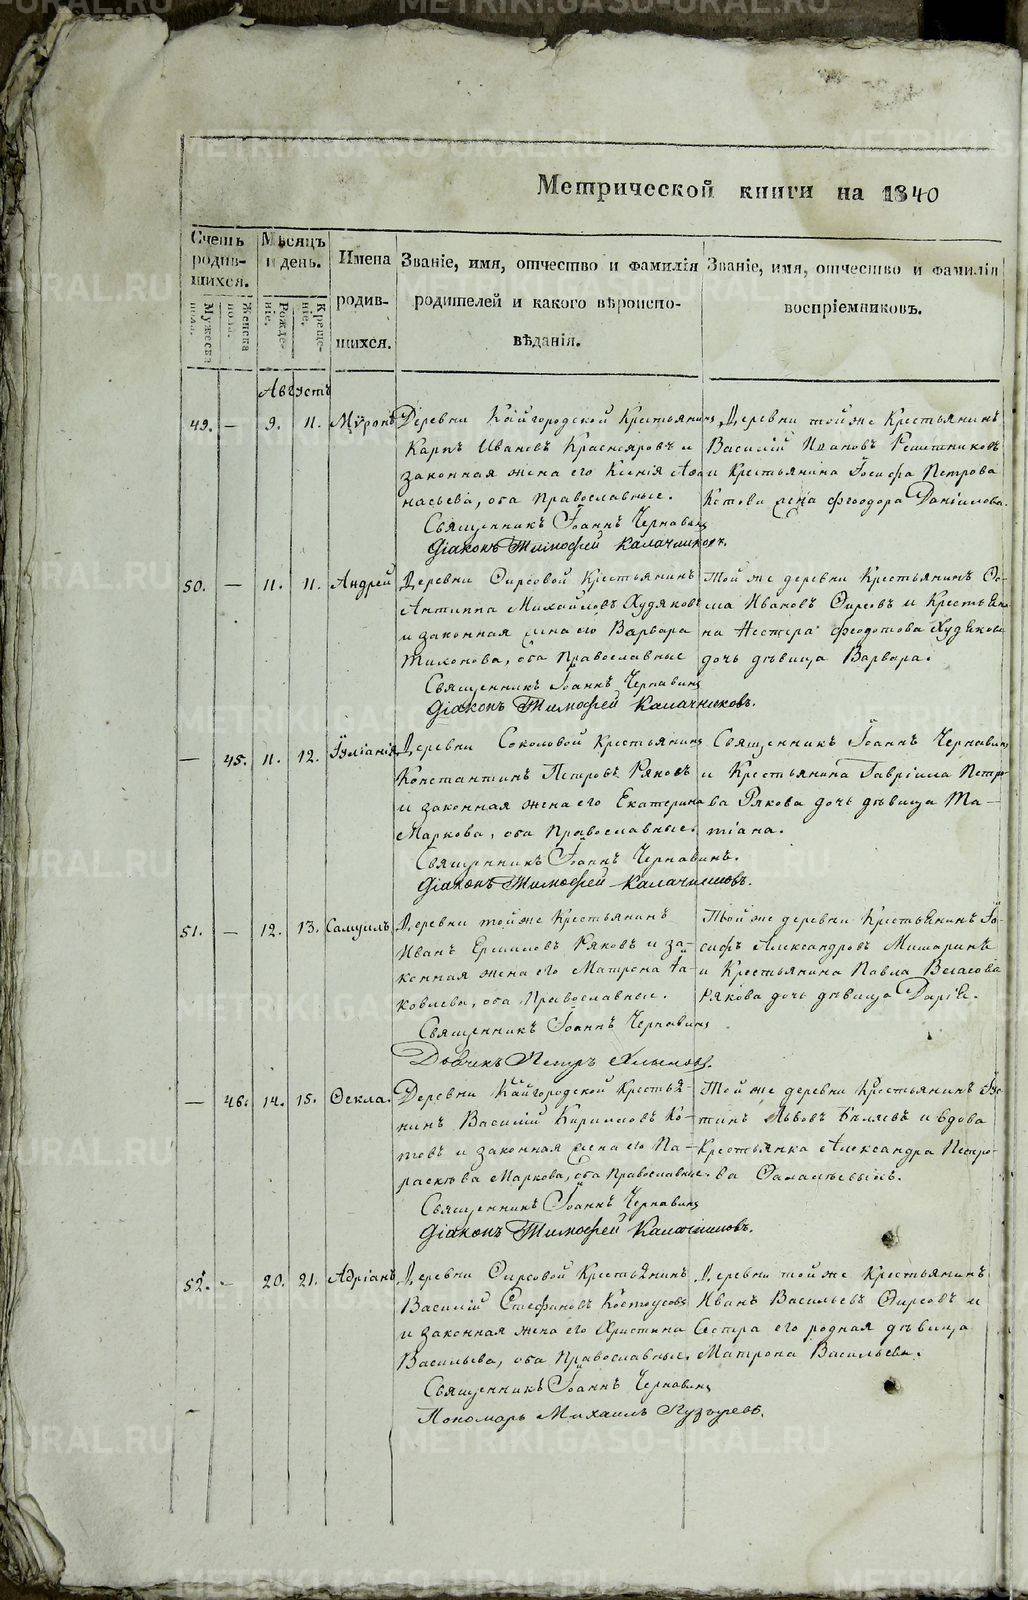 Метрической книги на 1840
Счетъ родившихся.
Мѣсяцъ и день.
Имена родившихся.
Званіе, имя, отчество и фамилія родителей и какого вѣроисповѣданія.
Званіе, имя, отчество и фамилія воспріемниковъ.
Мужеска пола.
Женска пола.
Рожденіе.
Крещеніе.
Августъ
49. — 9. 11. Мѵронъ
Деревни Кайгородской Крестьянинъ
Карпъ Ивановъ Краснояровъ и
законная жена его Ксенія Аѳа-
насьева, оба православные.
Деревни той же Крестьянинъ
Василій Ивановъ Решетниковъ
и Крестьянина Іосифа Петрова
Котова жена Феодора Даніилова.
Священникъ Іоаннъ Чернавинъ
Діаконъ Тимофей Калачниковъ.
50. — 11. 11. Андрей
Деревни Ѳирсовой Крестьянинъ
Антипа Михайловъ Худяковъ
и законная жена его Варвара
Тихонова, оба Православные
Той же деревни Крестьянинъ Ѳо-
ма Ивановъ Ѳирсовъ и Крестьяни-
на Нестера Феодотова Худякова
дочь дѣвица Варвара.
Священникъ Іоаннъ Чернавинъ
Діаконъ Тимофей Калачниковъ.
— 45. 11. 12. Іуліанія
Деревни Соколовой Крестьянинъ
Константинъ Петровъ Ряковъ
и законная жена его Екатерина
Маркова, оба православные.
Священникъ Іоаннъ Чернавинъ
и Крестьянина Гавріила Петро-
ва Рякова дочь дѣвица Та-
тіана.
Священникъ Іоаннъ Чернавинъ.
Діаконъ Тимофей Калачниковъ.
51. — 12. 13. Самуилъ
Деревни той же Крестьянинъ
Иванъ Ермиловъ Ряковъ и за-
конная жена его Матрона Іа-
ковлева, оба Православные.
Той же деревни Крестьянинъ Іо-
сифъ Александровъ Мишаринъ
и Крестьянина Павла Власова
Рякова дочь дѣвица Дарія.
Священникъ Іоаннъ Чернавинъ
Дьячекъ Петръ Хлыновъ.
— 46. 14. 15. Ѳекла.
Деревни Кайгородской Крестья-
нинъ Василій Кириловъ Ко-
товъ и законная жена его Па-
раскѣва Маркова, оба Православные.
Той же деревни Крестьянинъ Іус-
тинъ Львовъ Бѣляевъ и вдова
Крестьянка Александра Петро-
ва
Священникъ Іоаннъ Чернавинъ
Діаконъ Тимофей Калачниковъ.
52. — 20. 21. Адріанъ
Деревни Ѳирсовой Крестьянинъ
Василій Стефановъ Костоусовъ
и законная жена его Христина
Васильева, оба Православные.
Деревни той же Крестьянинъ
Иванъ Васильевъ Ѳирсовъ и
Сестра его родная дѣвица
Матрона Васильева.
Священникъ Іоаннъ Чернавинъ
Пономарь Михаилъ Пузыревъ.
METRIKI.GASO-URAL.RU